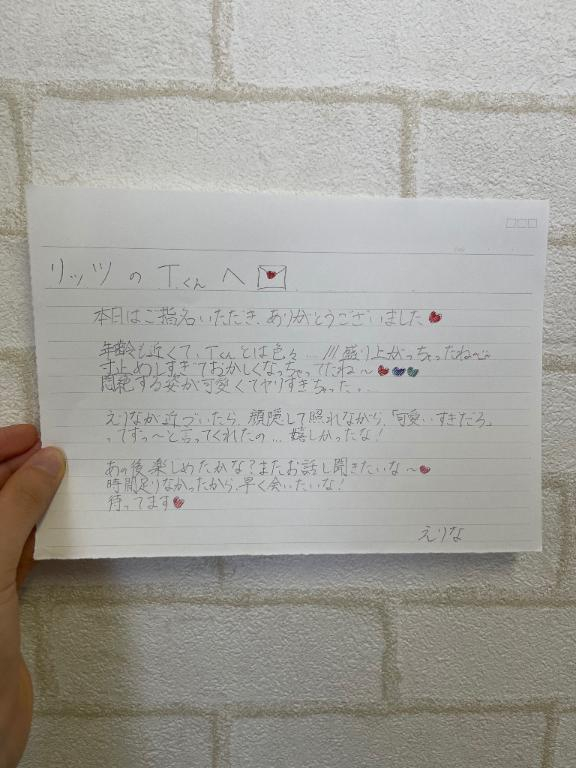 リッツの Tくんへ
本日はご指名いただき、ありがとうございました
年齢も近くて、Tくんとは色々...///盛り上がっちゃったね〜
寸止めしすぎておかしくなっちゃってたね〜
悶絶する姿が可愛くてヤリすぎちった...
えりなが近づいたら、顔隠して照れながら、「可愛いすぎだろ」
ってずっ〜と言ってくれたの...嬉しかったな!
あの後楽しめたかな?またお話し聞きたいな〜
時間足りなかったから、早く会いたいな!
待ってます
えりな